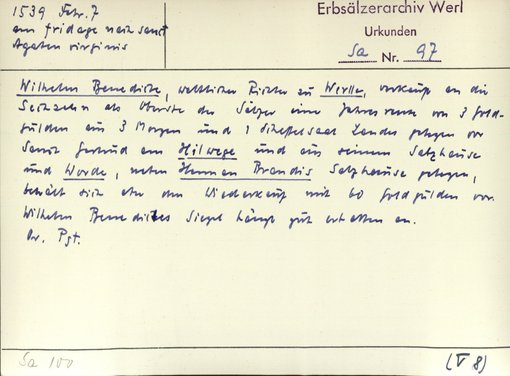 1539 Febr. 7
am fridage nach sanct
Agaten virginis
Erbsälzerarchiv Werl
Urkunden
Sa Nr. 97
Wilhelm Benedicte, weltlicher Richter zu Werlle, verkauft an die
Sechzehn als Oberste der Sälzer eine Jahresrente von 3 Gold-
gülden aus 3 Morgen und 1 Scheffelsaat Landes gelegen vor
Sanct Gertrud am Hilwege und aus seinem Salzhause
und Worde, neben Hermen Brandis Salzhause gelegen,
behält sich aber den Wiederkauf mit 60 Goldgülden vor.
Wilhelm Benedictes Siegel hängt gut erhalten an.
Or. Pgt.
Sa 100
(V 8)